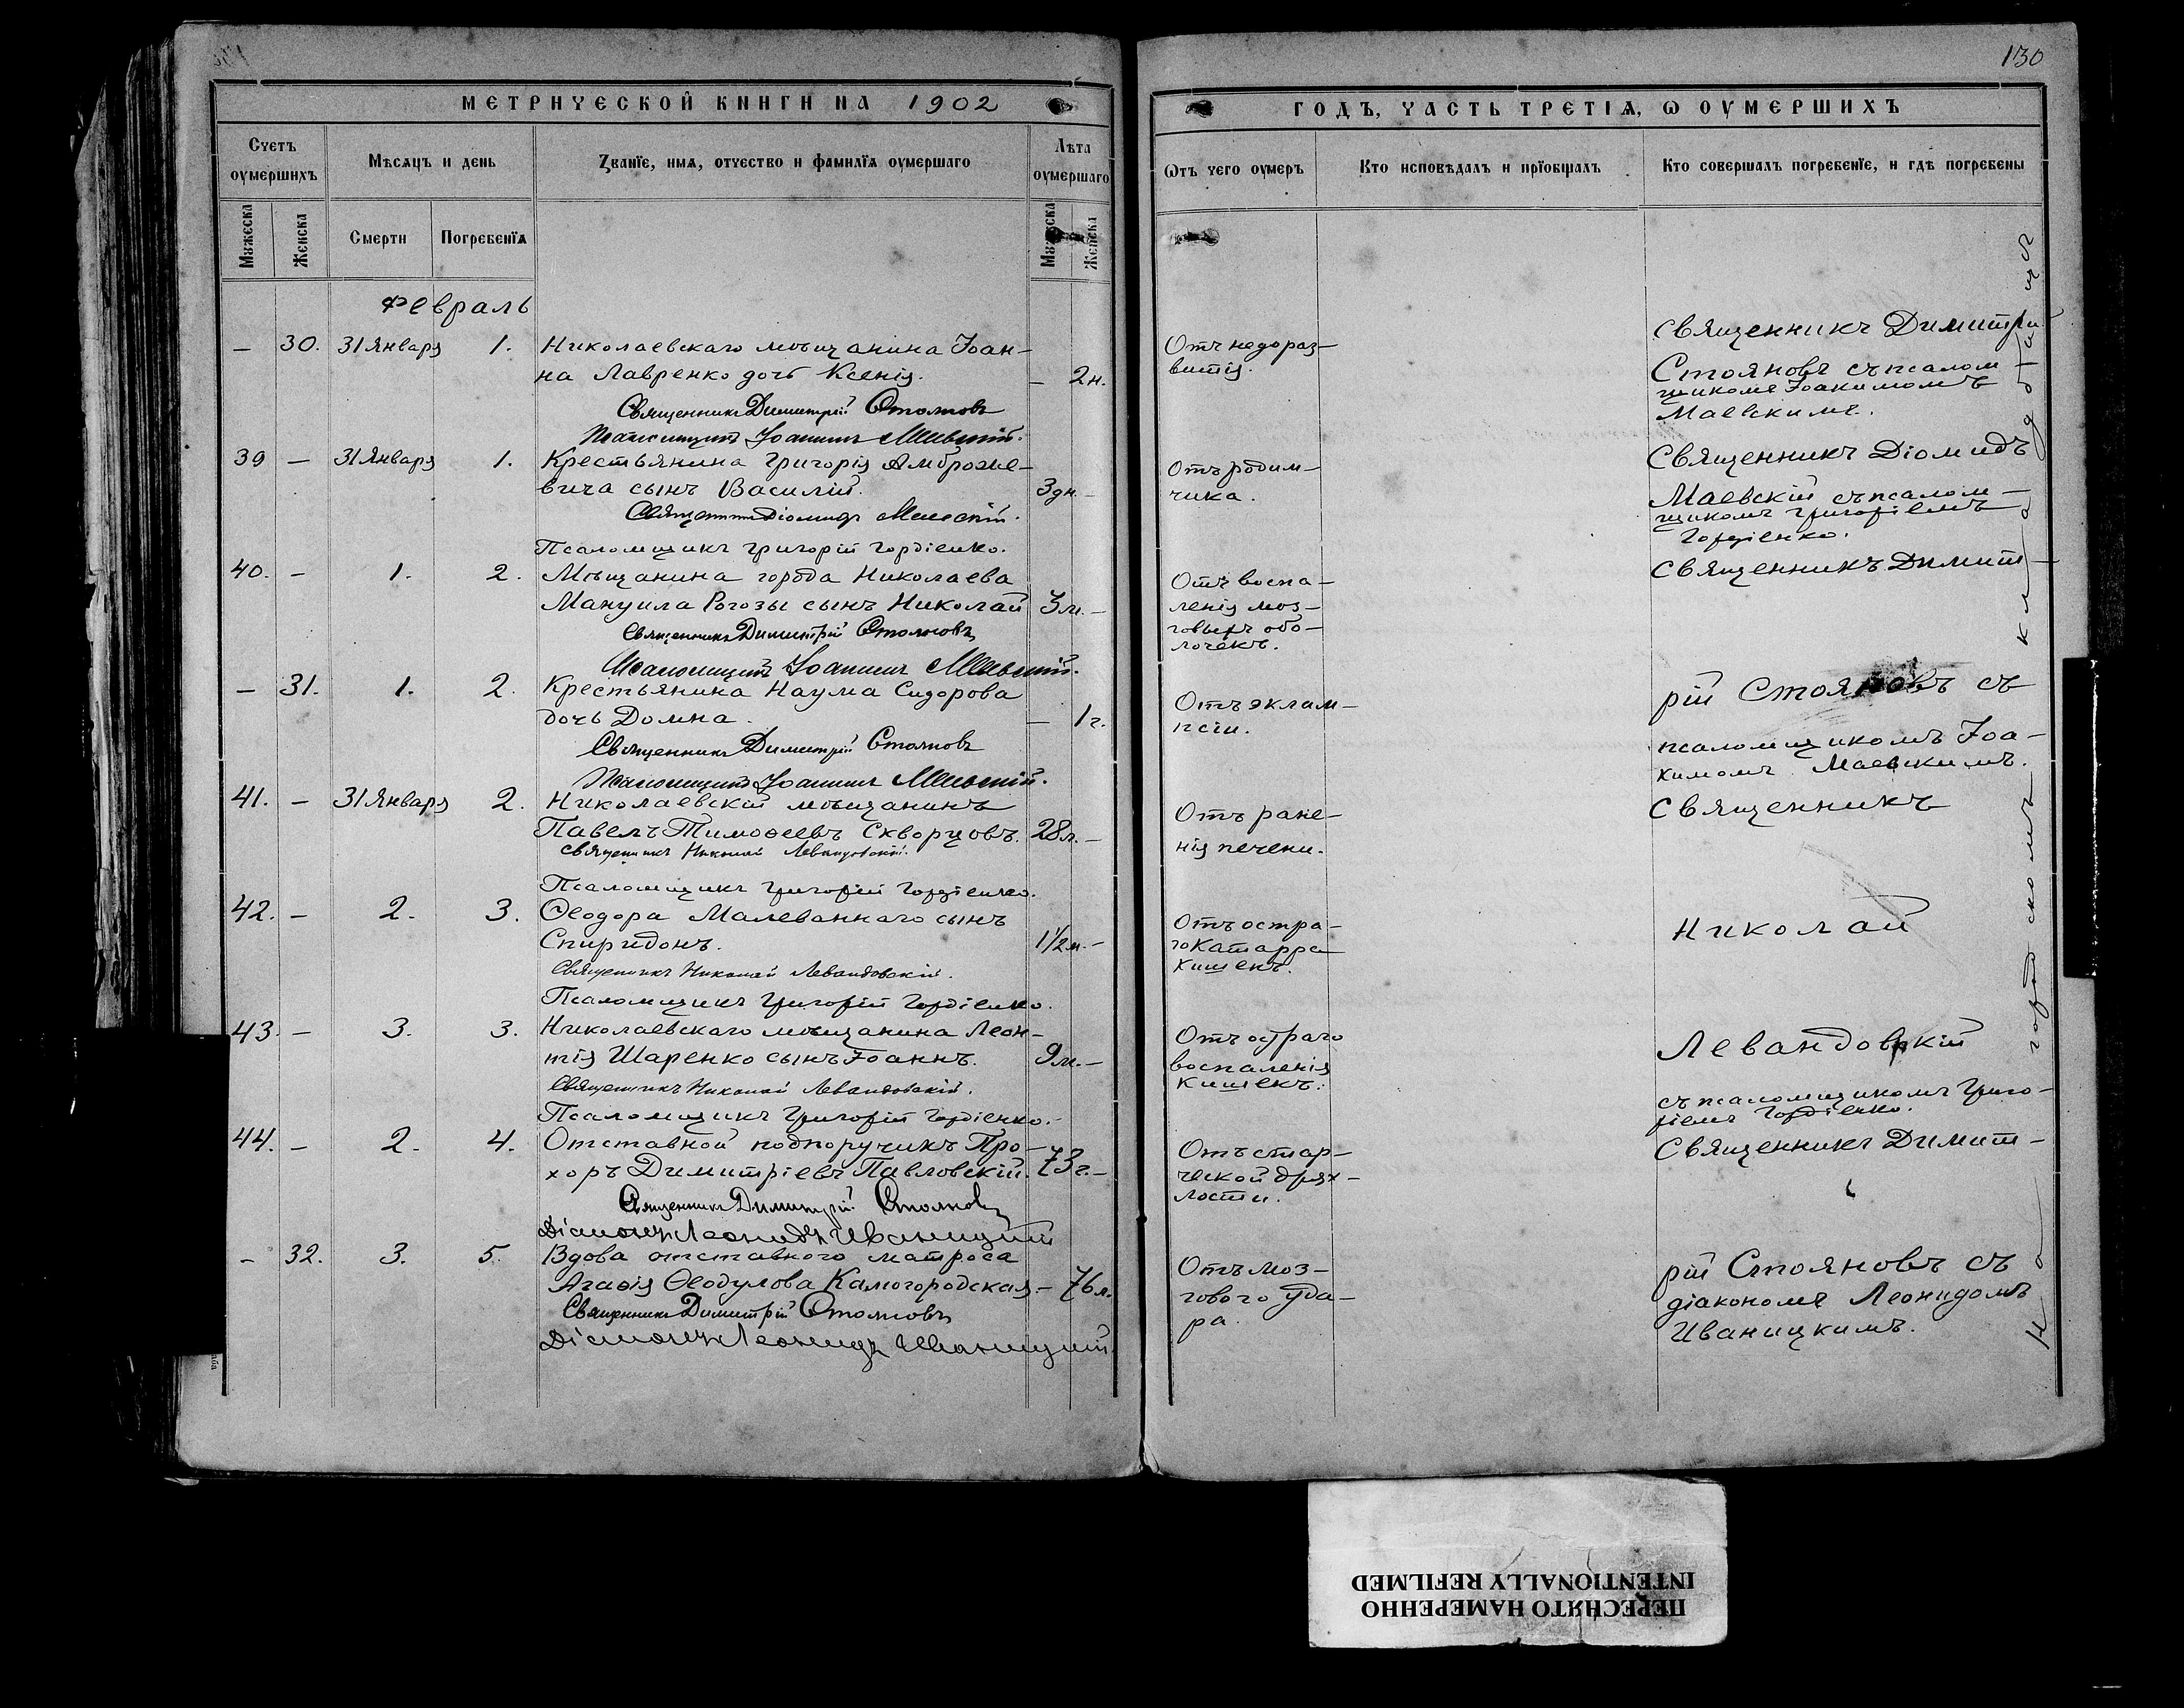 130
МЕТРИЧЕСКОЙ КНИГИ НА 1902
ГОДЪ, ЧАСТЬ ТРЕТІѦ, Ѡ ОУМЕРШИХЪ
Счетъ оумершихъ
Мѣсѧцъ и день
Званїе, имѧ, отчество и фамилїѧ оумершаго
Лѣта оумершаго
Ѿтъ чего оумеръ
Кто исповѣдалъ и прїобщалъ
Кто совершалъ погребенїе, и гдѣ погребены
Мужеска
Женска
Смерти
Погребенїѧ
Мужеска
Женска
Февраль
— 30. 31 Января 1. Николаевскаго мѣщанина Іоан-
на Лавренко дочь Ксенія. — 2н.
Священникъ Димитрій Стояновъ
Псаломщикъ Іоакимъ Маевскій.
Отъ недораз-
витія.
Священникъ Димитрій
Стояновъ съ псалом-
щикомъ Іоакимомъ
Маевскимъ.
39 — 31 Января 1. Крестьянина Григорія Амброже-
вича сынъ Василій. 3дн. —
Священникъ Діомидъ Маевскій.
Псаломщикъ Григорій Гордіенко.
Отъ родим-
чика.
Священникъ Діомидъ
Маевскій съ псалом-
щикомъ Григоріемъ
Гордіенко.
40. — 1. 2. Мѣщанина города Николаева
Мануила Рогозы сынъ Николай 3м. —
Священникъ Димитрій Стояновъ
Псаломщикъ Іоакимъ Маевскій.
Отъ воспа-
ленія моз-
говыхъ обо-
лочекъ.
Священникъ Димит-
— 31. 1. 2. Крестьянина Наума Сидорова
дочь Домна. — 1г.
Священникъ Димитрій Стояновъ
Псаломщикъ Іоакимъ Маевскій.
Отъ эклам-
псіи.
рій Стояновъ съ
псаломщикомъ Іоа-
кимомъ Маевскимъ.
41. — 31 Января 2. Николаевскій мѣщанинъ
Павелъ Тимоѳеевъ Скворцовъ. 28л. —
Священникъ Николай Левандовскій.
Псаломщикъ Григорій Гордіенко.
Отъ ране-
нія печени.
Священникъ
42. — 2. 3. Ѳеодора Малеваннаго сынъ
Спиридонъ. 1½м. —
Священникъ Николай Левандовскій.
Псаломщикъ Григорій Гордіенко.
Отъ остра-
го катарра
кишекъ.
Николай
43. — 3. 3. Николаевскаго мѣщанина Леон-
тія Шаренко сынъ Іоаннъ. 9м. —
Священникъ Николай Левандовскій.
Псаломщикъ Григорій Гордіенко.
Отъ остраго
воспаленія
кишекъ.
Левандовскій
съ псаломщикомъ Григо-
ріемъ Гордіенко.
44. — 2. 4. Отставной подпоручикъ Про-
хоръ Димитріевъ Павловскій. 73г. —
Священникъ Димитрій Стояновъ
Діаконъ Леонидъ Иваницкій
Отъ стар-
ческой дрях-
лости.
Священникъ Димит-
— 32. 3. 5. Вдова отставного матроса
Агаѳія Ѳеодулова Камогородская. — 76л.
Священникъ Димитрій Стояновъ
Діаконъ Леонидъ Иваницкій.
Отъ моз-
гового уда-
ра.
рій Стояновъ съ
діакономъ Леонидомъ
Иваницкимъ.
На городскомъ кладбищѣ
ПЕРЕСНЯТО НАМЕРЕННО
INTENTIONALLY REFILMED